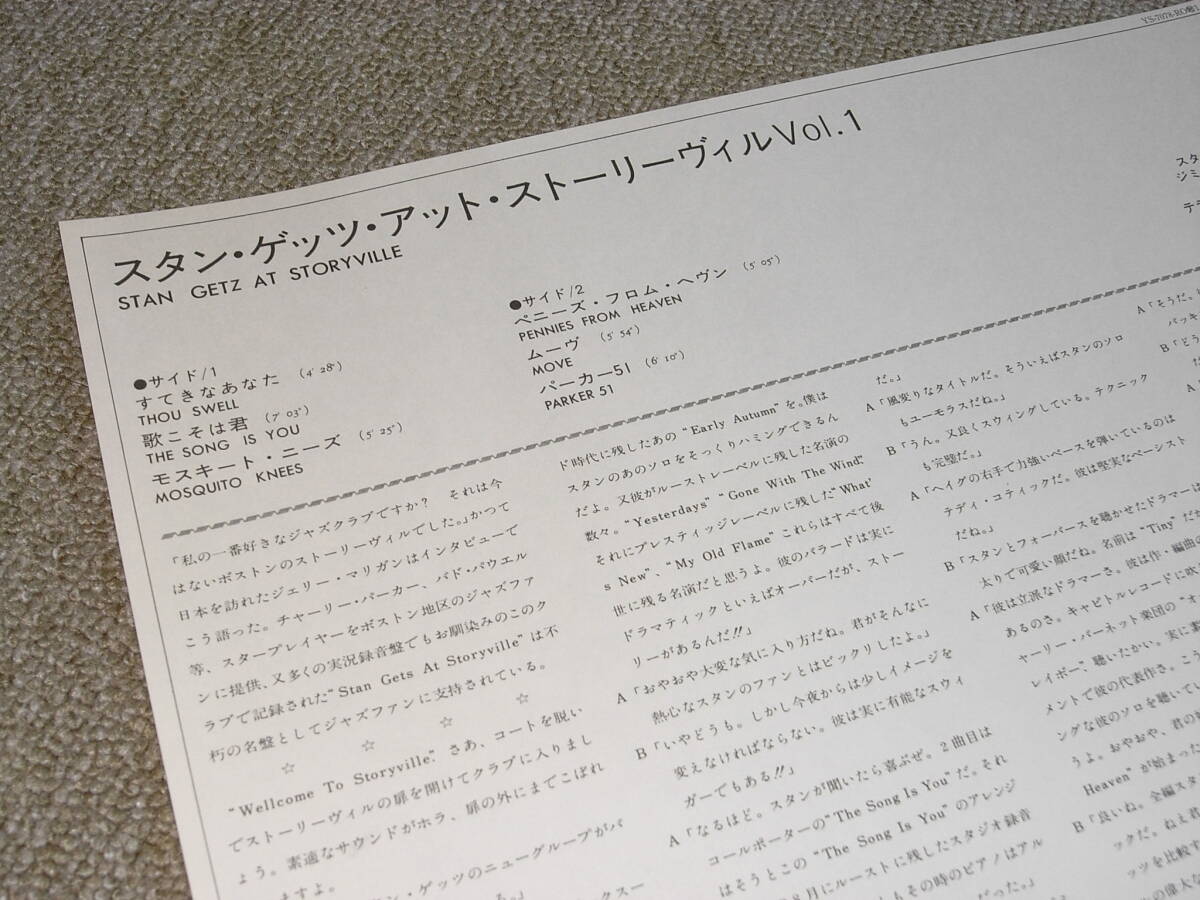 YS-7078-RO
スタン・ゲッツ・アット・ストーリーヴィルVol.1
STAN GETZ AT STORYVILLE
●サイド/1
すてきなあなた (4′28″)
THOU SWELL
歌こそは君 (7′03″)
THE SONG IS YOU
モスキート・ニーズ (5′25″)
MOSQUITO KNEES
●サイド/2
ペニーズ・フロム・ヘヴン (5′05″)
PENNIES FROM HEAVEN
ムーヴ (5′54″)
MOVE
パーカー51 (6′10″)
PARKER 51
スタ
ジミ
テラ
「私の一番好きなジャズクラブですか? それは今
はないボストンのストーリーヴィルでした。」かつて
日本を訪れたジェリー・マリガンはインタビューで
こう語った。チャーリー・パーカー、バド・パウエル
等、スタープレイヤーをボストン地区のジャズファ
ンに提供、又多くの実況録音盤でもお馴染みのこのク
ラブで記録された“Stan Gets At Storyville”は不
朽の名盤としてジャズファンに支持されている。
☆ ☆ ☆ ☆
“Wellcome To Storyville.” さあ、コートを脱い
でストーリーヴィルの扉を開けてクラブに入りまし
ょう。素適なサウンドがホラ、扉の外にまでこぼれ
ますよ。
ン・ゲッツのニューグループがバ
ド時代に残したあの “Early Autumn” を。僕は
スタンのあのソロをそっくりハミングできるん
だよ。又彼がルーストレーベルに残した名演の
数々。“Yesterdays” “Gone With The Wind.”
それにプレスティッジレーベルに残した“What'
s New”、“My Old Flame” これらはすべて後
世に残る名演だと思うよ。彼のバラードは実に
ドラマティックといえばオーバーだが、ストー
リーがあるんだ!!」
A「おやおや大変な気に入り方だね。君がそんなに
熱心なスタンのファンとはビックリしたよ。」
B「いやどうも。しかし今夜からは少しイメージを
変えなければならない。彼は実に有能なスウィ
ガーでもある!!」
A「なるほど。スタンが聞いたら喜ぶぜ。2曲目は
コールポーターの“The Song Is You”だ。それ
はそうとこの “The Song Is You” のアレンジ
8月にルーストに残したスタジオ録音
もその時のピアノはアル
だった。」
だ。」
A「風変りなタイトルだ。そういえばスタンのソロ
もユーモラスだね。」
B「うん。又良くスウィングしている。テクニック
も完璧だ。」
A「ヘイグの右手で力強いベースを弾いているのは
テディ・コティックだ。彼は堅実なベーシスト
だね。」
B「スタンとフォーバースを聴かせたドラマーは
太りで可愛い顔だね。名前は “Tiny” だ
A「彼は立派なドラマーさ。彼は作・編曲の
あるのさ。キャピトルレコードに吹
ャーリー・バーネット楽団の “オ
レイボー”、聴いたかい。実に素
メントで彼の代表作さ。こう
ングな彼のソロを聴いて
うよ。おやおや、君の
Heaven” が始まった
B「良いね。全編スタ
ックだ。ねえ君
ッツを比較す
の偉大な
A「そうだ。
バッキ
B「どう
だ
A